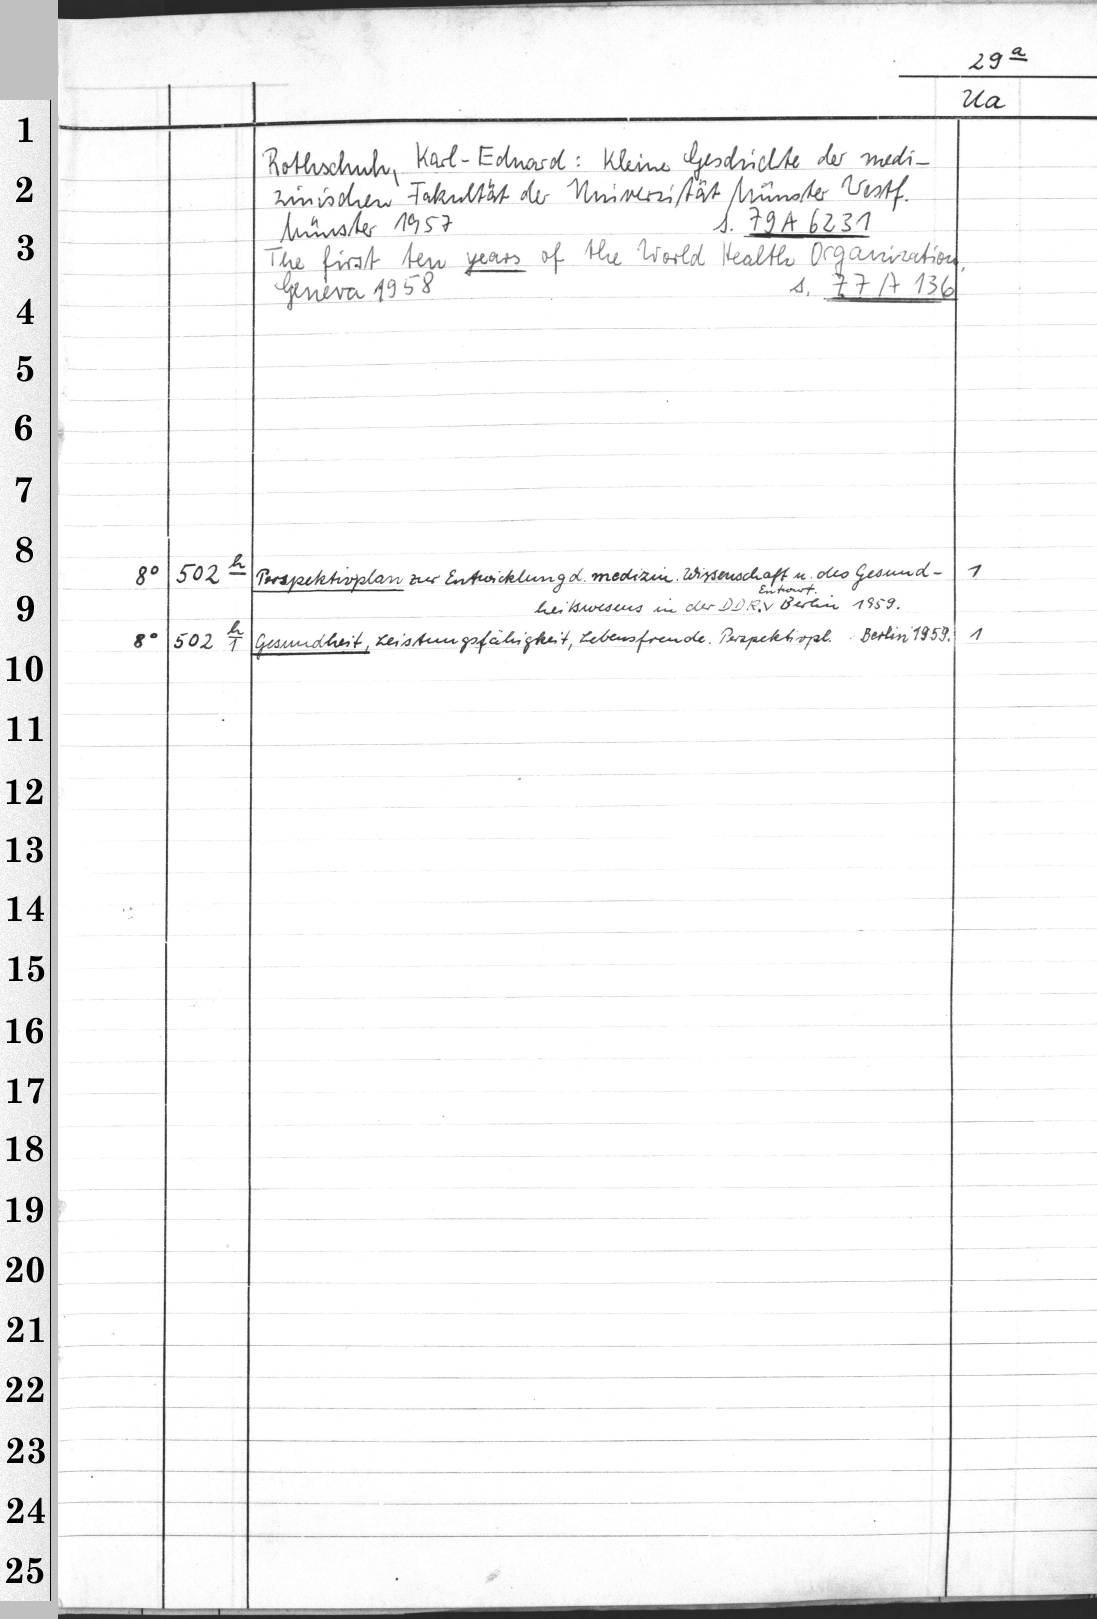 29a
Ua
1
2
3
4
5
6
7
8
9
10
11
12
13
14
15
16
17
18
19
20
21
22
23
24
25
Rothschuh, Karl-Eduard: Kleine Geschichte der medi-
zinischen Fakultät der Universität Münster Westf.
Münster 1957 s. 79 A 6231
The first ten years of the World Health Organization,
Geneva 1958 s. 77 A 136
8° 502 h Perspektivplan zur Entwicklung d. medizin. Wissenschaft u. des Gesund- 1
Entwurf.
heitswesens in der DDR.v Berlin 1959.
8° 502 h/1 Gesundheit, Leistungsfähigkeit, Lebensfreude. Perspektivpl. Berlin 1959. 1